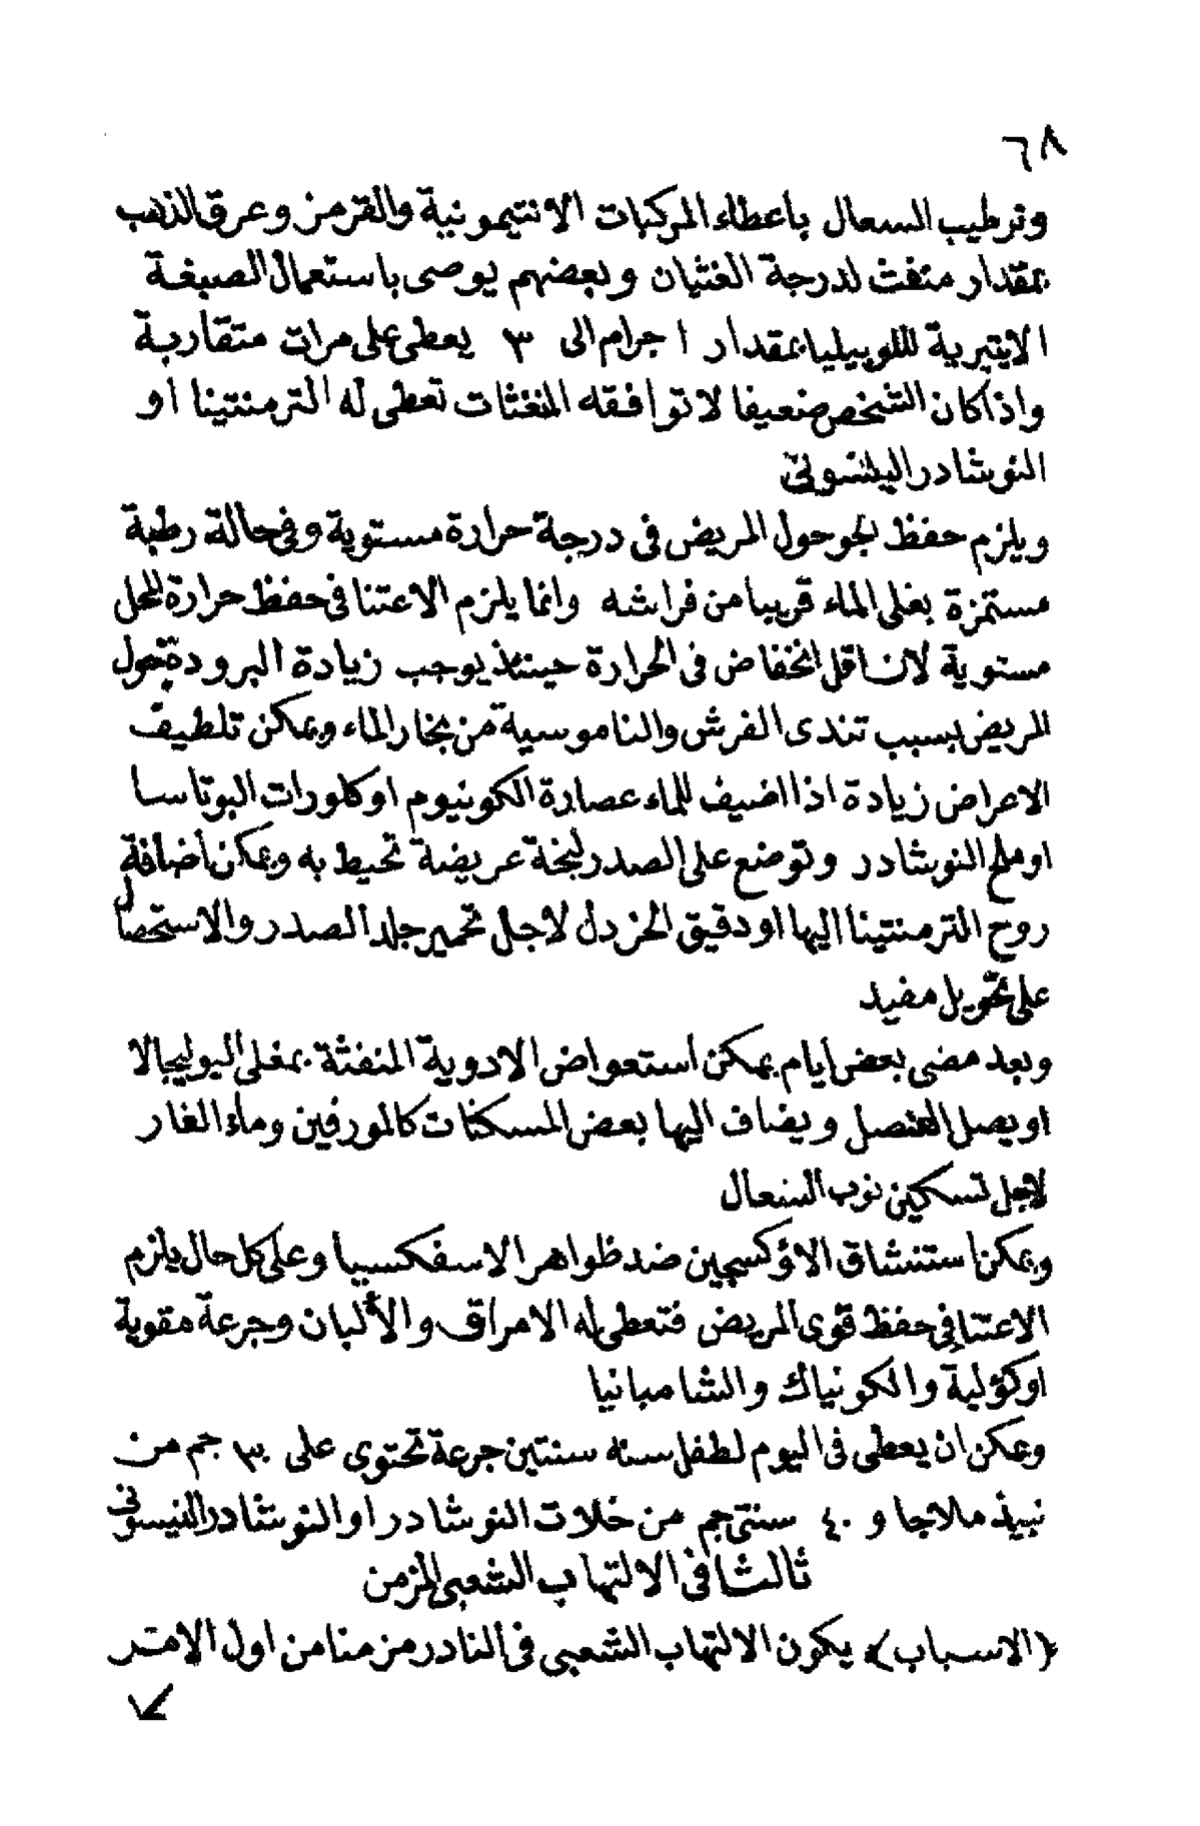 ٦٨
وترطيب السعال باعطاء المركبات الانتيمونية والقرمز وعرق الذهب
بمقدار منفث لدرجة الغثيان وبعضهم يوصى باستعمال الصبغة
الايتيرية للوبيليا بمقدار ١ جرام الى ٣ يعطى على مرات متقاربة
واذا كان الشخص ضعيفا لا توافقه المنغثات تعطى له الترمنتينا او
النوشادر الينسونى
ويلزم حفظ الجو حول المريض فى درجة حرارة مستوية وفى حالة رطبة
مستمرة بغلى الماء قريبا من فراشه وانما يلزم الاعتنا فى حفظ حرارة المحل
مستوية لان اقل انخفاض فى الحرارة حينئذ يوجب زيادة البرودة حول
المريض بسبب تندى الفرش والناموسية من بخار الماء ويمكن تلطيف
الاعراض زيادة اذا اضيف للماء عصارة الكونيوم او كلورات البوتاسا
او ملح النوشادر وتوضع على الصدر لبخة عريضة تحيط به ويمكن اضافة
روح الترمنتينا اليها او دقيق الخردل لاجل تحمير جلد الصدر والاستحصال
على تحويل مفيد
وبعد مضى بعض ايام يمكن استعواض الادوية المنفثة بمغلى البوليجالا
او بصل العنصل ويضاف اليها بعض المسكنات كالمورفين وماء الغار
لاجل تسكين نوب السعال
ويمكن استنشاق الاؤكسجين ضد ظواهر الاسفكسيا وعلى كل حال يلزم
الاعتنا فى حفظ قوى المريض فتعطى له الامراق والألبان وجرعة مقوية
اوكؤلية والكونياك والشامبانيا
ويمكن ان يعطى فى اليوم لطفل سنه سنتين جرعة تحتوى على ٣٠ جم من
نبيذ ملاجا و ٤٠ سنتى جم من خلات النوشادر او النوشادر الينسونى
ثالثا فى الالتهاب الشعبى المزمن
﴿الاسباب﴾ يكون الالتهاب الشعبى فى النادر مزمنا من اول الامر